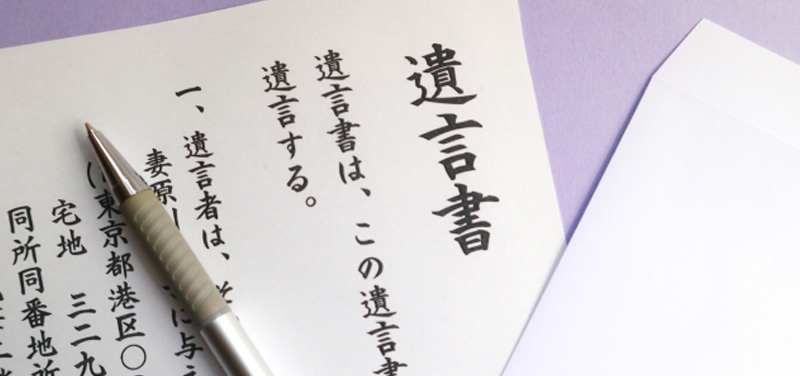 遺言書
遺言書は、この遺言書
遺言する。
一、遺言者は、そ
妻原
に与え
(東京都港区〇
宅地 三二九
同所同番地所